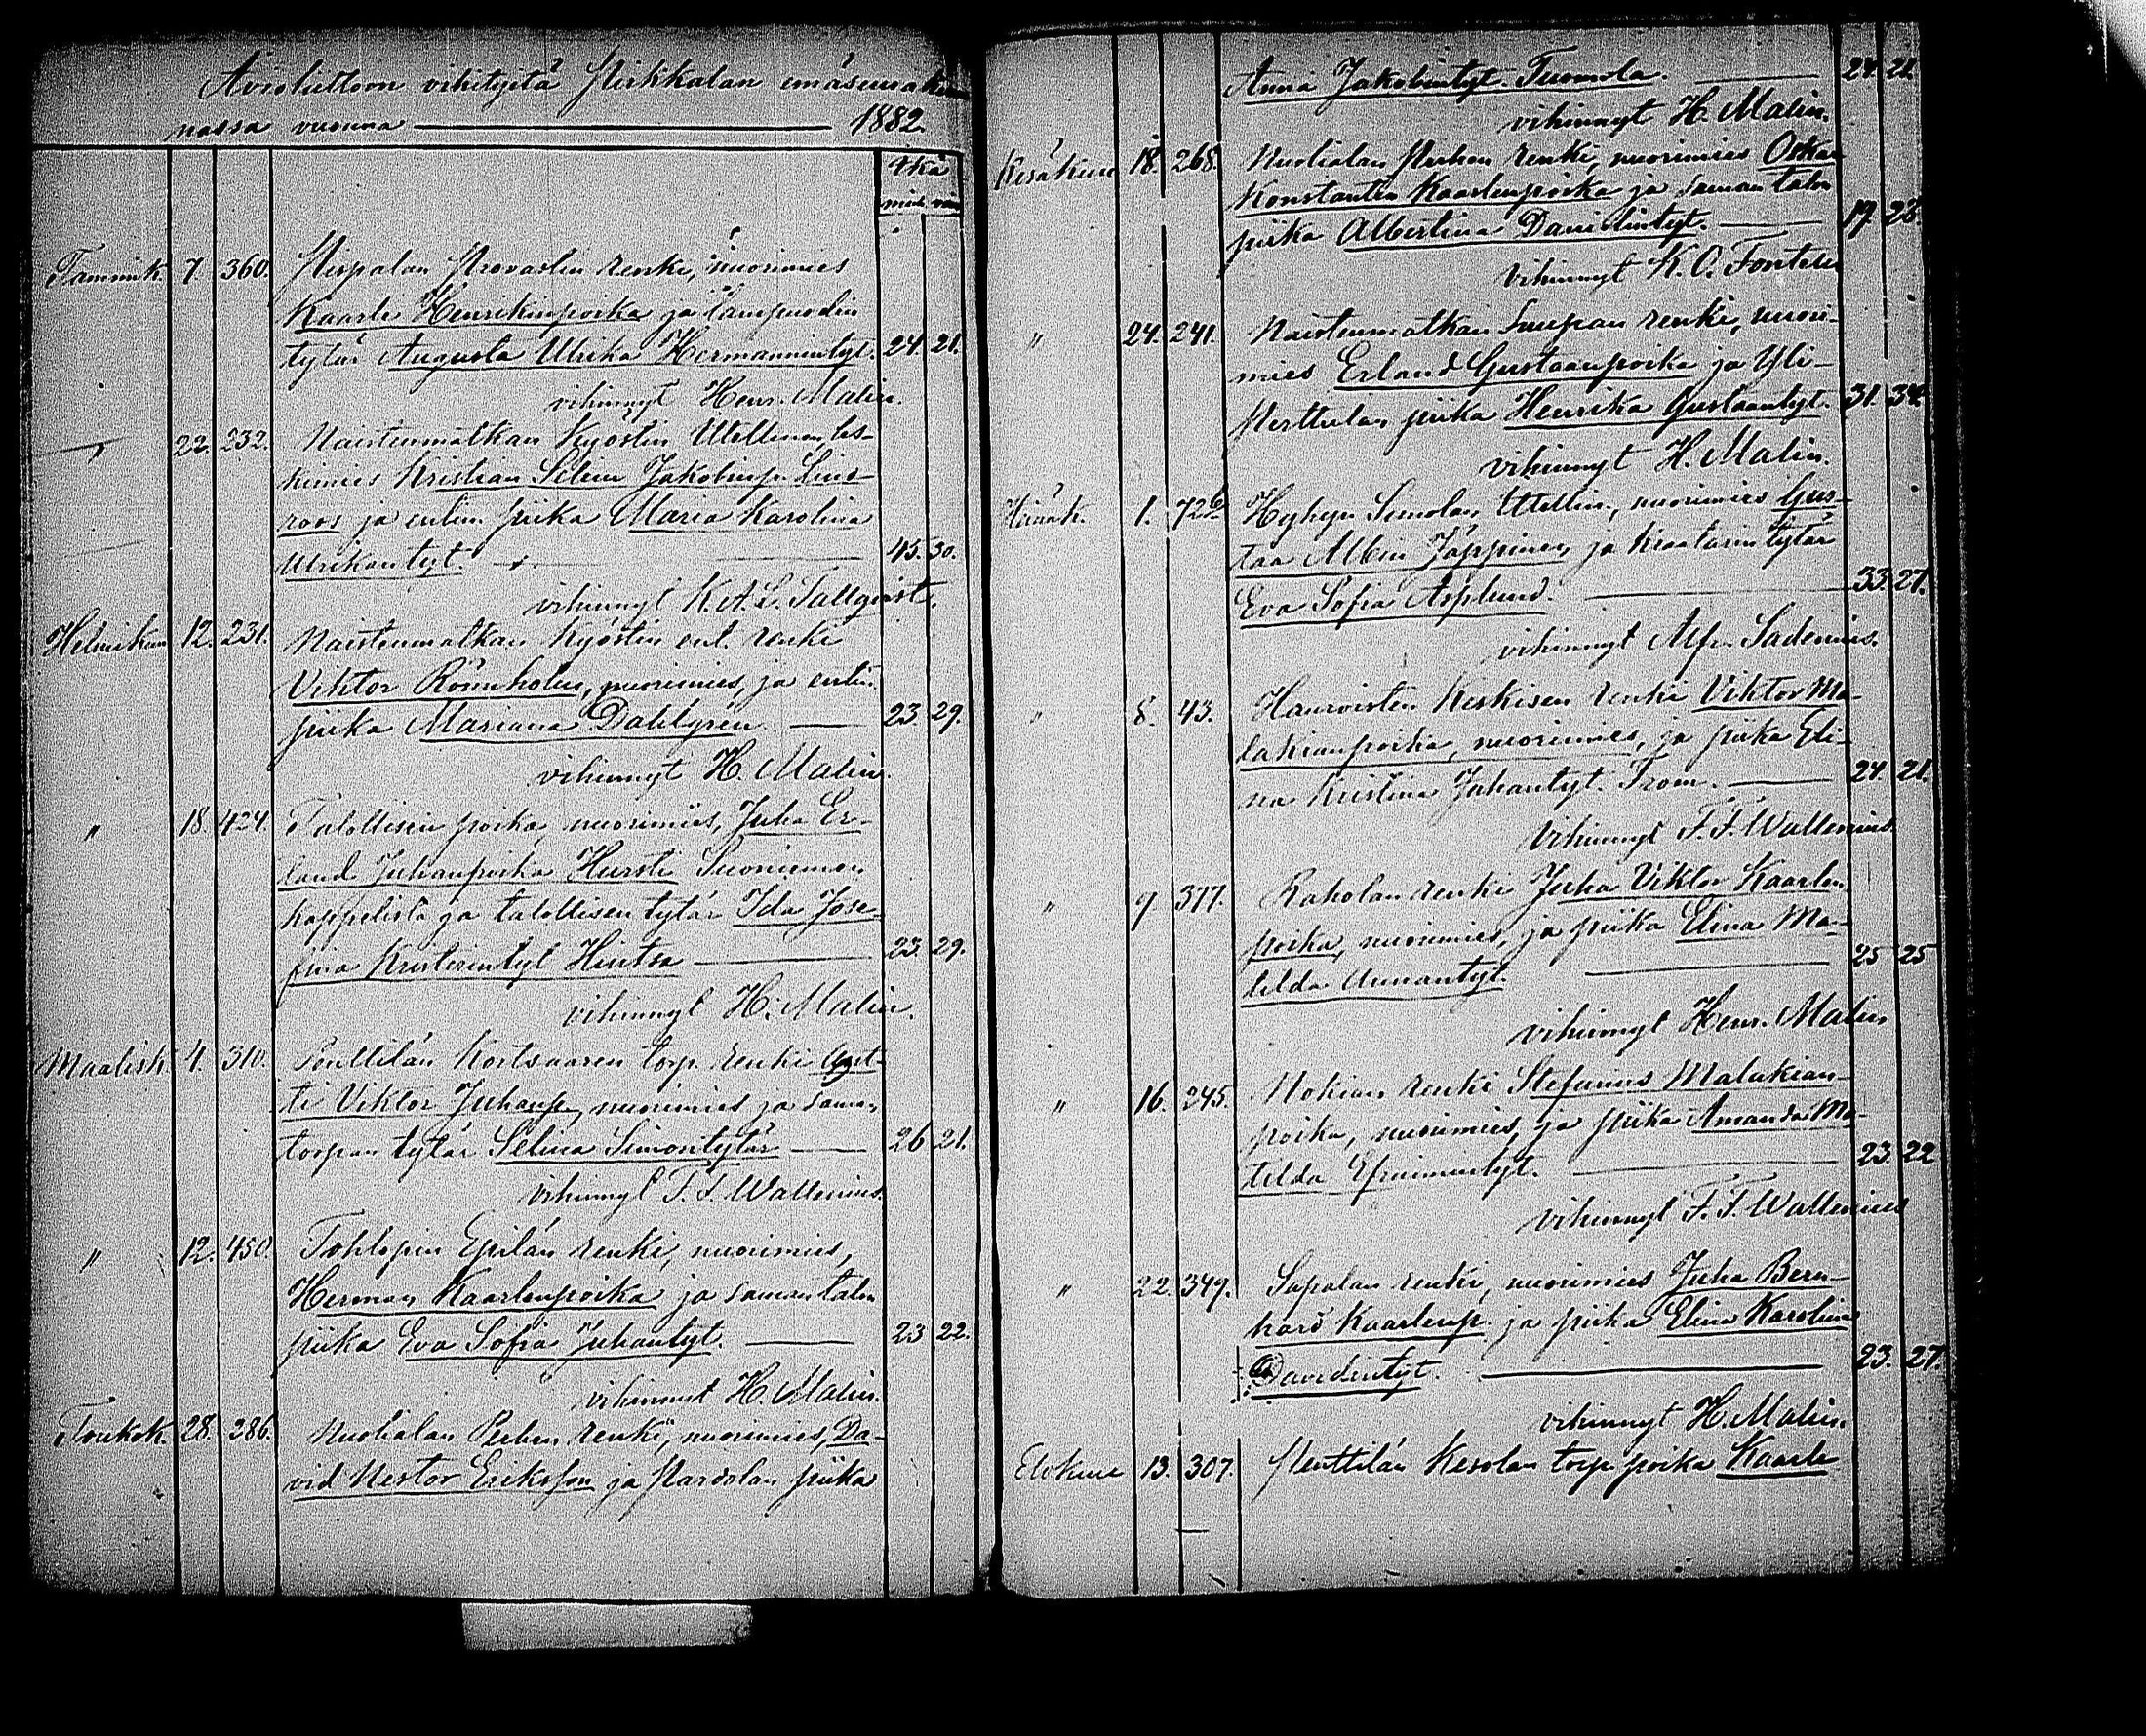 Avioliittoon vihityitä Pirkkalan emäseurakun
nassa vuonna 1882.
Ikä
mieh. vaim
Tammik. 7. 360. Pispalan Provastin renki, nuorimies
Kaarle Henrikinpoika ja lampuodin
tytär Augusta Ulrika Hermannintyt. 24. 21.
vihinnyt Henr. Malin.
" 22. 232. Naistenmatkan Kyöstin Itellinen, les-
kimies Kristian Selim Jakobinp. Lind-
roos ja entin. piika Maria Karolina
Ulrikantyt. 45. 30.
vihinnyt K. A. L. Tallqvist.
Helmikuu 12. 231. Naistenmatkan Kyöstin ent. renki
Viktor Rönnholm, nuorimies, ja entin.
piika Mariana Dahlgrén 23 29.
vihinnyt H. Malin.
" 18. 424. Talollisen poika, nuorimies, Juha Er-
land Juhanpoika Hursti Suoniemen
kappelista ja talollisen tytär Ida Jose-
fina Kristerintyt Hintsa 23. 29.
vihinnyt H. Malin.
Maalisk. 4. 310. Penttilän Kortsaaren torp. renki Kyös-
ti Viktor Juhanp. nuorimies ja saman
torpan tytär Selina Simontytär 26 21.
vihinnyt F. F. Wallenius.
" 12. 450. Tohlopin Epilän renki, nuorimies,
Herman Kaarlenpoika ja saman talon
piika Eva Sofia Juhantyt. 23 22.
vihinnyt H. Malin.
Toukok. 28. 286. Nuolialan Penhon renki, nuorimies, Da-
vid Nestor Eriksson ja Pardolan piika
Anna Jakobintyt. Tuomola. 24. 21
vihinnyt H. Malin.
Kesäkuu 18. 268. Nuolialan Penhon renki, nuorimies Oskar
Konstantin Kaarlenpoika ja saman talon
piika Albertina Davidintyt. 19. 28.
vihinnyt K. O. Fontell
" 24. 241. Naistenmatkan Suupan renki, nuori-
mies Erland Gustaanpoika ja Yli-
Perttulan piika Henrika Gustaantyt. 31. 34.
vihinnyt H. Malin.
Heinäk. 1. 726. Hyhyn Simolan Itellin., nuorimies Gus-
taa Albin Jäppinen ja kraatarin tytär
Eva Sofia Asplund. 33. 27.
vihinnyt Alfr. Sadenius.
" 8. 43. Hauroisten Keskisen renki Viktor Ma-
lakianpoika, nuorimies, ja piika Eli-
na Kristina Juhantyt. From. 24. 21.
vihinnyt F. F. Wallenius.
" 9 377. Raholan renki Juha Viktor Kaarlen
poika, nuorimies, ja piika Elina Ma-
tilda Annantyt. 25 25
vihinnyt Henr. Malin
" 16. 245. Nokian renki Stefanus Malakian-
poika, nuorimies, ja piika Amanda Ma-
tilda Efraimintyt. 23. 22
vihinnyt F. F. Wallenius
" 22. 349. Sapalan renki, nuorimies Juha Bern-
hard Kaarlenp. ja piika Elina Karolina
Davidintyt. 23. 27.
vihinnyt H. Malin.
Elokuu 13. 307. Penttilän Kesolan torp. poika Kaarle